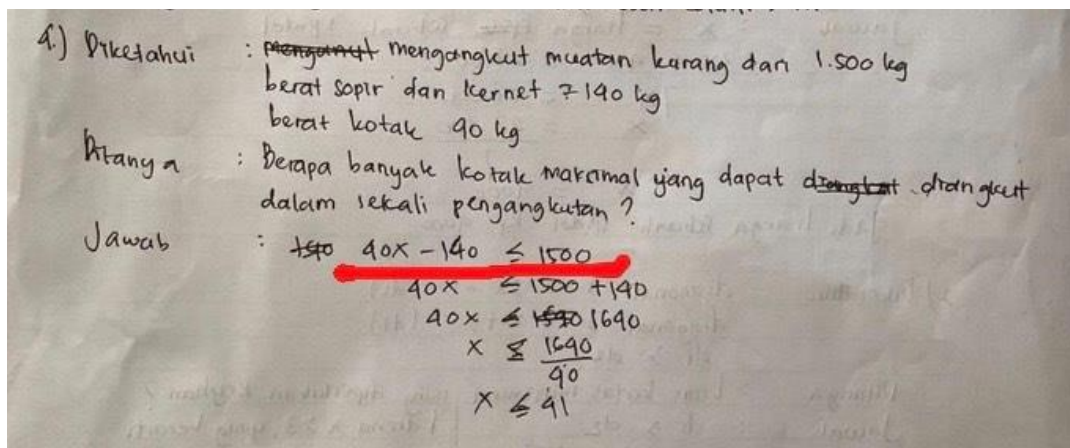 4.) Diketahui : mengangkut muatan kurang dari 1.500 kg
berat sopir dan kernet = 140 kg
berat kotak 40 kg
Ditanya : Berapa banyak kotak maksimal yang dapat diangkut
dalam sekali pengangkutan ?
Jawab : 40x - 140 ≤ 1500
40x ≤ 1500 + 140
40x ≤ 1640
x ≤ 1640/40
x ≤ 41